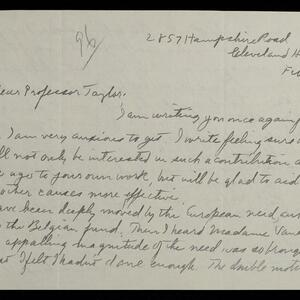 96
2857 Hampshire Road
Cleveland H
Dear Professor Taylor:
I am writing you once again f
I am very anxious to get. I write feeling sure
ll not only be interested in such a contribution a
to your own work, but will be glad to aid
other causes more effective.
ave been deeply moved by the European need, an
to the Belgian fund. Then I heard Madame Van
appalling magnitude of the need was so broug
at I felt I hadn't done enough. The double mot